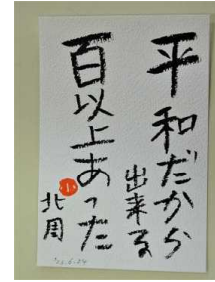 平和だから
出来る
百以上あった
北周